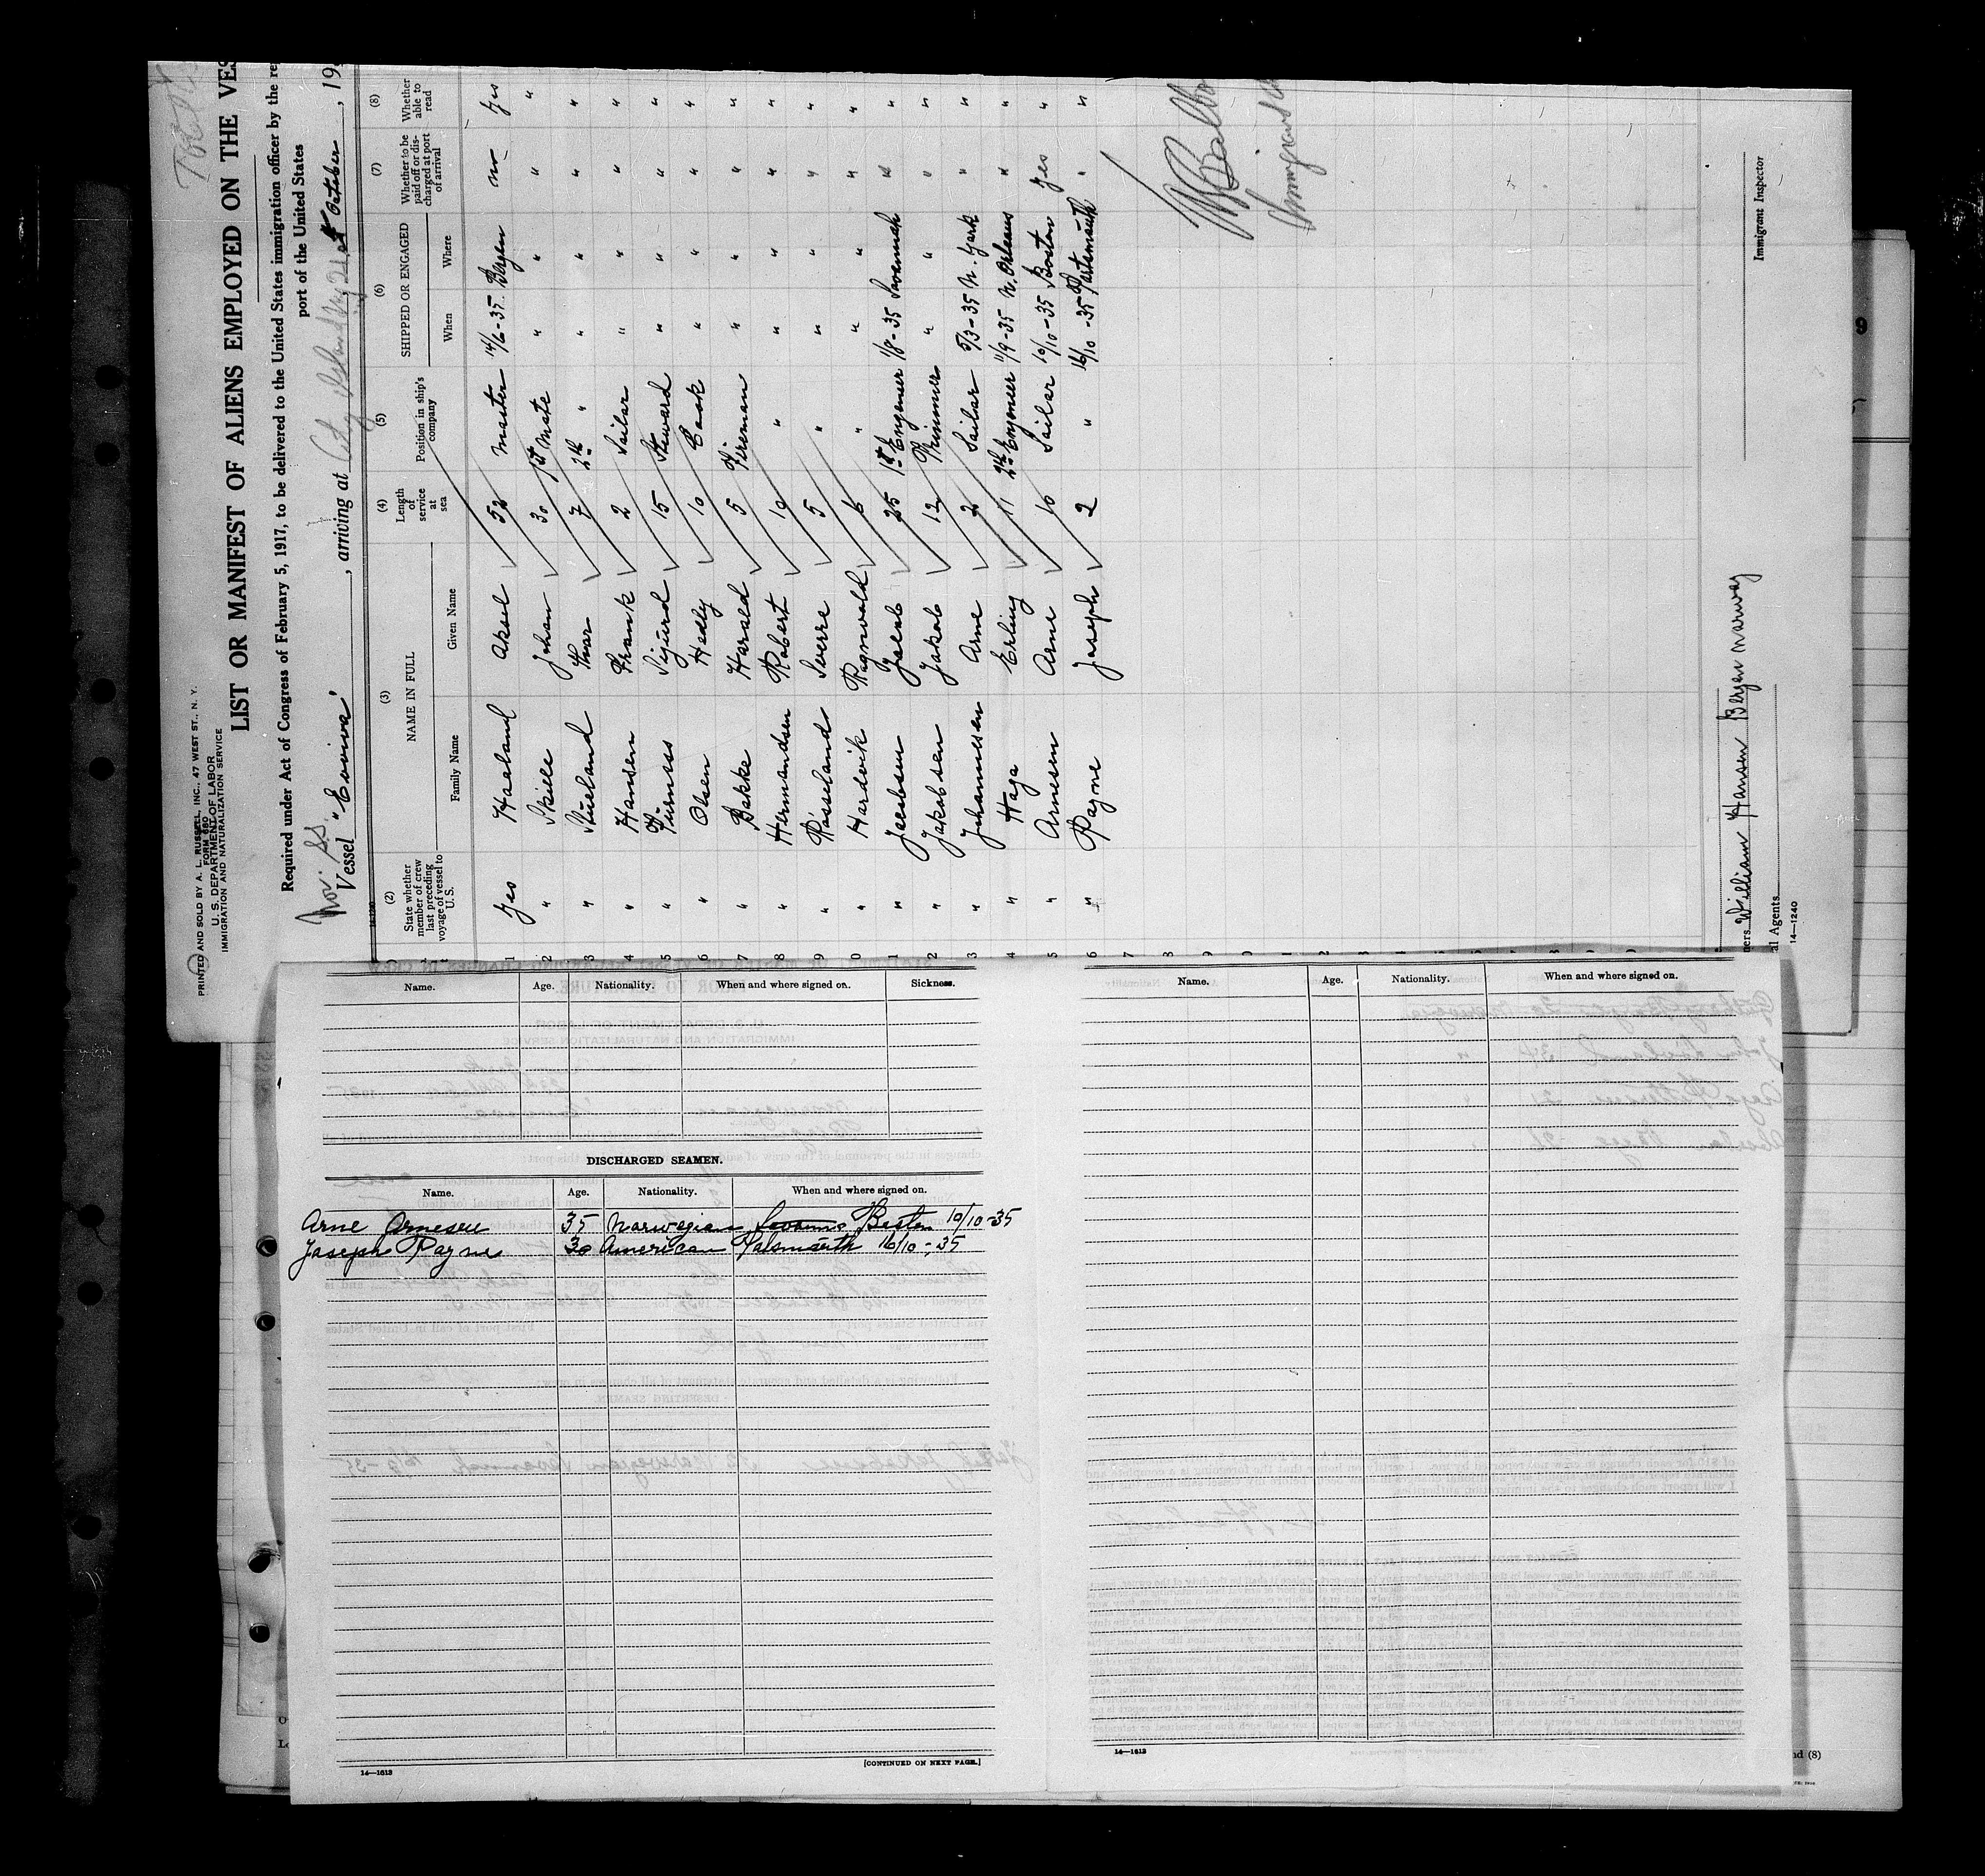 PRINTED AND SOLD BY A. L. RUSSELL, INC., 47 WEST ST., N. Y.
FORM 680
U. S. DEPARTMENT OF LABOR
IMMIGRATION AND NATURALIZATION SERVICE
LIST OR MANIFEST OF ALIENS EMPLOYED ON THE VES
Required under Act of Congress of February 5, 1917, to be delivered to the United States immigration officer by the re
port of the United States
Nor. S.S.
Vessel , arriving at City Island N.Y. 21st October , 19
(2) State whether member of crew last preceding voyage of vessel to U. S.
(3) NAME IN FULL
Family Name Given Name
(4) Length of service at sea
(5) Position in ship's company
(6) SHIPPED OR ENGAGED
When Where
(7) Whether to be paid off or discharged at port of arrival
(8) Whether able to read
1 Yes Haaland Aksel 52 Master 14/6-35 Bergen no Yes
2 " Skille Johan 30 1st Mate " " " "
3 " Stueland Thor 7 2nd " " " " "
4 " Hansen Frank 2 Sailor " " " "
5 " Furness Sigurd 15 Steward " " " "
6 " Olsen Hedly 10 Cook " " " "
7 " Bakke Harald 5 Fireman " " " "
8 " Hermandsen Robert 19 " " " " "
9 " Rasseland Sverre 5 " " " " "
0 " Hardvik Ragnvald 6 " " " " "
1 " Jacobsen Jacob 25 1st Engeneer 1/8-35 Savannah " "
2 " Jakobsen Jakob 12 Trimmer " " " "
3 " Johannesen Arne 2 Sailor 5/3-35 N. York " "
4 " Haga Erling 11 2nd Engeneer 11/9-35 N. Orleans " "
5 " Arnesen Arne 10 Sailor 10/10-35 Boston Yes "
6 " Payne Joseph 2 " 16/10-35 Portsmouth " "
7
8
9
0
1
2
3
4
5
6
7
8
9
Immigrant Inspector
ners William Hansen Bergen Norway
al Agents
14—1240
Name. Age. Nationality. When and where signed on. Sickness.
DISCHARGED SEAMEN.
Name. Age. Nationality. When and where signed on.
Arne Arnesen 35 Norwegian Boston 10/10-35
Joseph Payne 30 American Patsmouth 16/10-35
14—1613
[CONTINUED ON NEXT PAGE.]
Name. Age. Nationality. When and where signed on.
14—1613
9
nd (8)